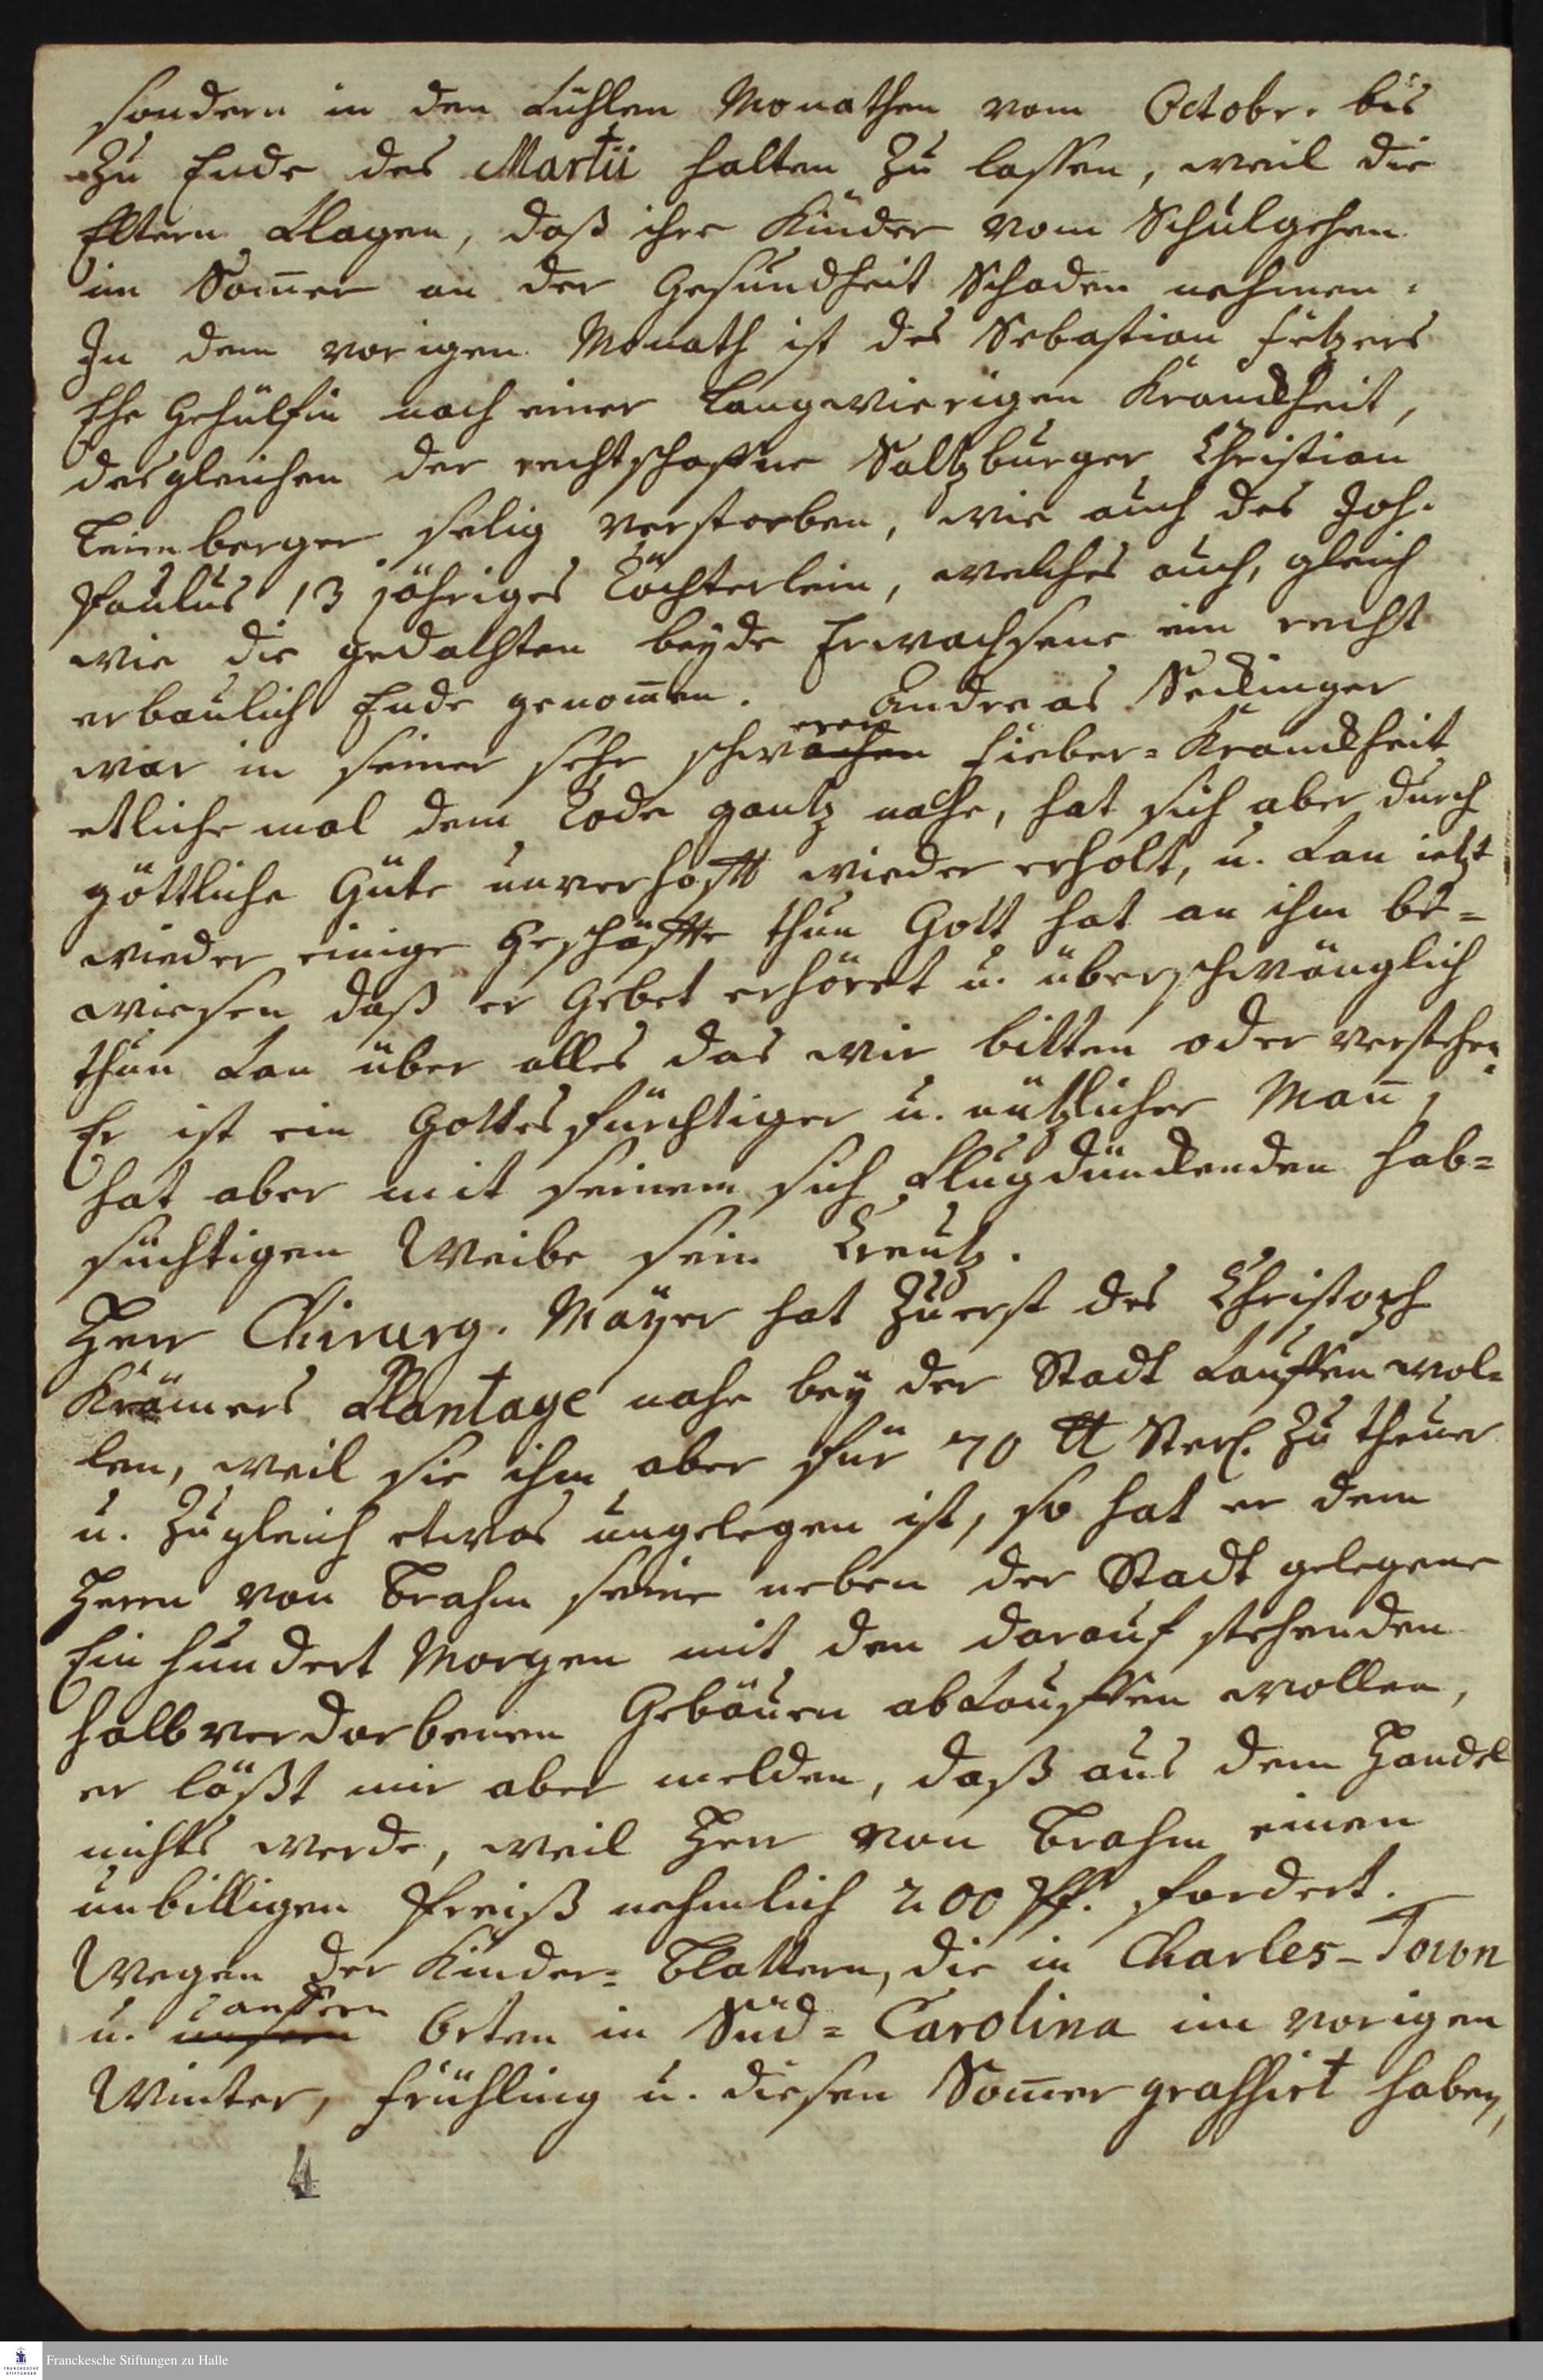 sondern in den kühlen Monathen vom Octobr. bis
zu Ende des Martii halten zu lassen, weil die
Eltern klagen, daß ihre Kinder vom Schulgehen
im Som̅er an der Gesundheit Schaden nehmen.
In dem vorigen Monath ist des Sebastian Fetzers
Ehe Gehülfin nach einer langwierigen Kranckheit,
desgleichen der rechtschaffne Saltzburger Christian
Leimberger selig verstorben, wie auch des Joh.
Paulus 13 jähriges Töchterlein, welches auch, gleich
wie die gedachten beyde Erwachsene ein recht
erbaulich Ende genom̅en. Andreas Seckinger
war in seiner sehr schweren Fieber-Kranckheit
etliche mal dem Tode gantz nahe, hat sich aber durch
göttliche Güte unverhofft wieder erholt, u. kan ietzt
wieder einige Geschäffte thun Gott hat an ihm be-
wiesen daß er Gebet erhöret u. überschwänglich
thun kan über alles das wir bitten oder verstehen.
Er ist ein Gottesfürchtiger u. nützlicher Man̅,
hat aber mit seinem sich klugdünckenden hab-
süchtigen Weibe sein Creutz.
Herr Chirurg. Mayer hat zuerst des Christoph
Krämers Plantage nahe bey der Stadt kauffen wol-
len, weil sie ihm aber für 70 ℔ Sterl. zu theuer
u. zugleich etwas ungelegen ist, so hat er dem
Herrn von Brahm seine neben der Stadt gelegene
Ein hundert Morgen mit den darauf stehenden
halbverdorbenen Gebäuen abkauffen wollen,
er läßt mir aber melden, daß aus dem Handel
nichts werde, weil Herr von Brahm einen
unbilligen Preiß nehmlich 200 Pf. fordert.
Wegen der Kinder-Blattern, die in Charles-Town
u. anssern
unsern Orten in Süd-Carolina im vorigen
Winter, Frühling u. diesen Som̅er grassirt haben,
4
Franckesche Stiftungen zu Halle
FRANCKESCHE STIFTUNGEN